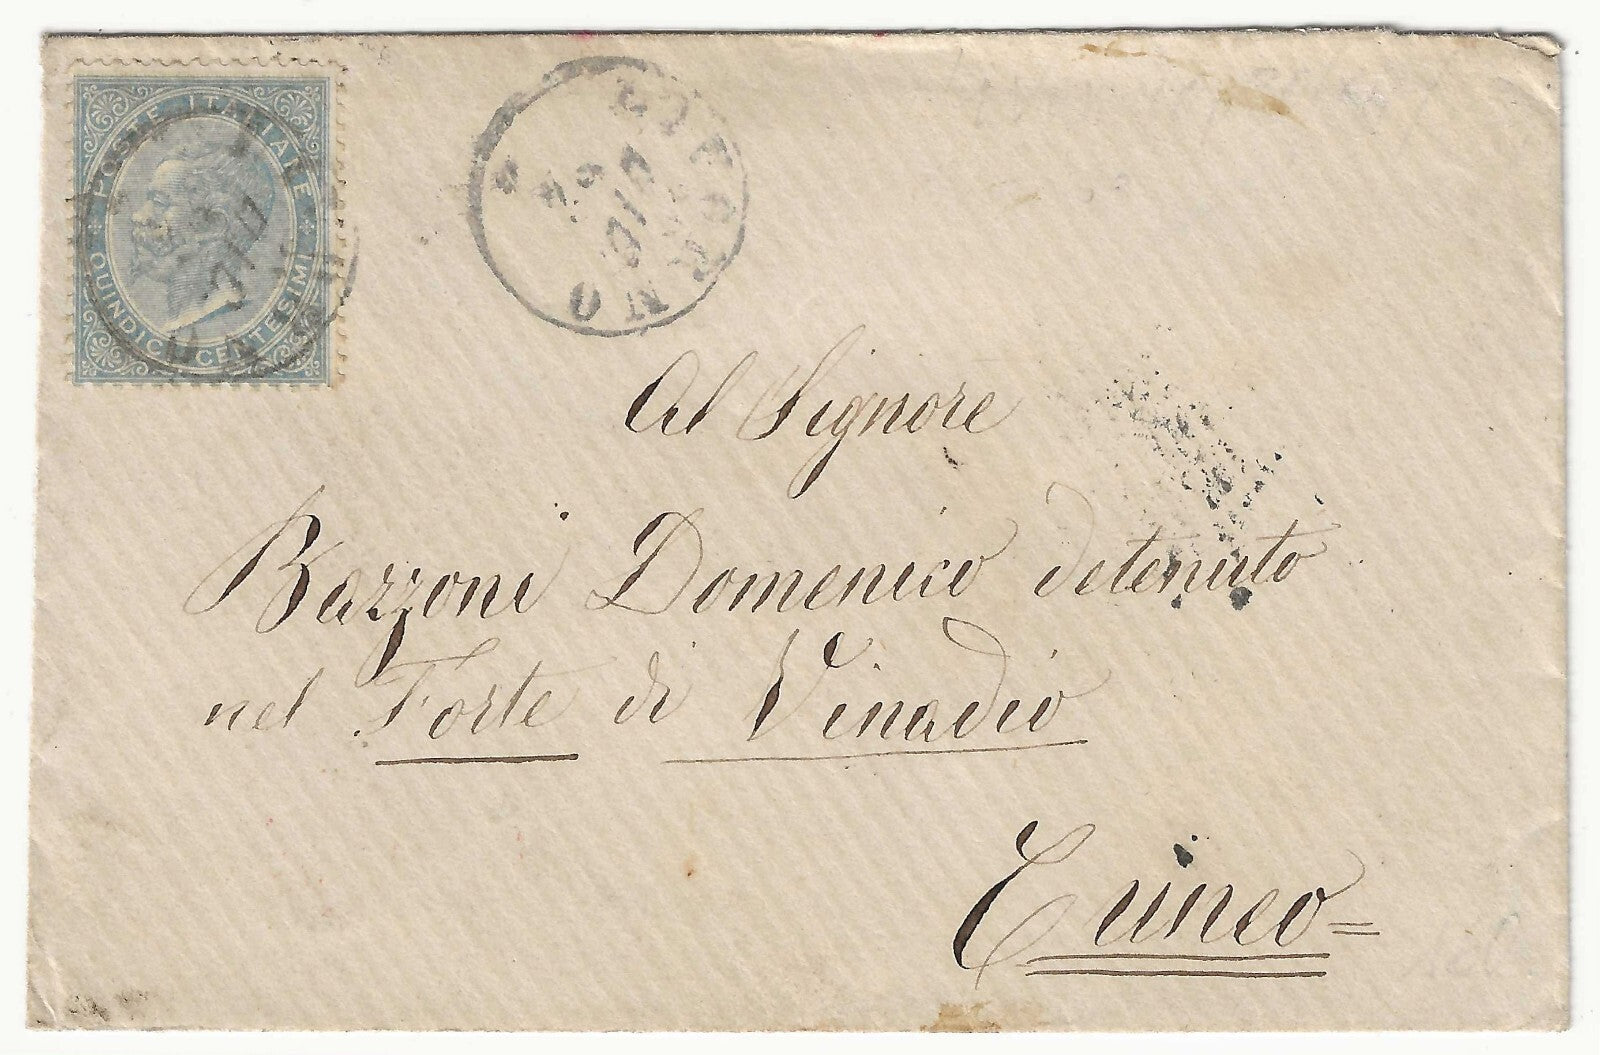 POSTE ITALIANE
QUINDICI CENTESIMI
LIVORNO
Al Signore
Bazzoni Domenico detenuto
nel Forte di Vinadio
Cuneo=